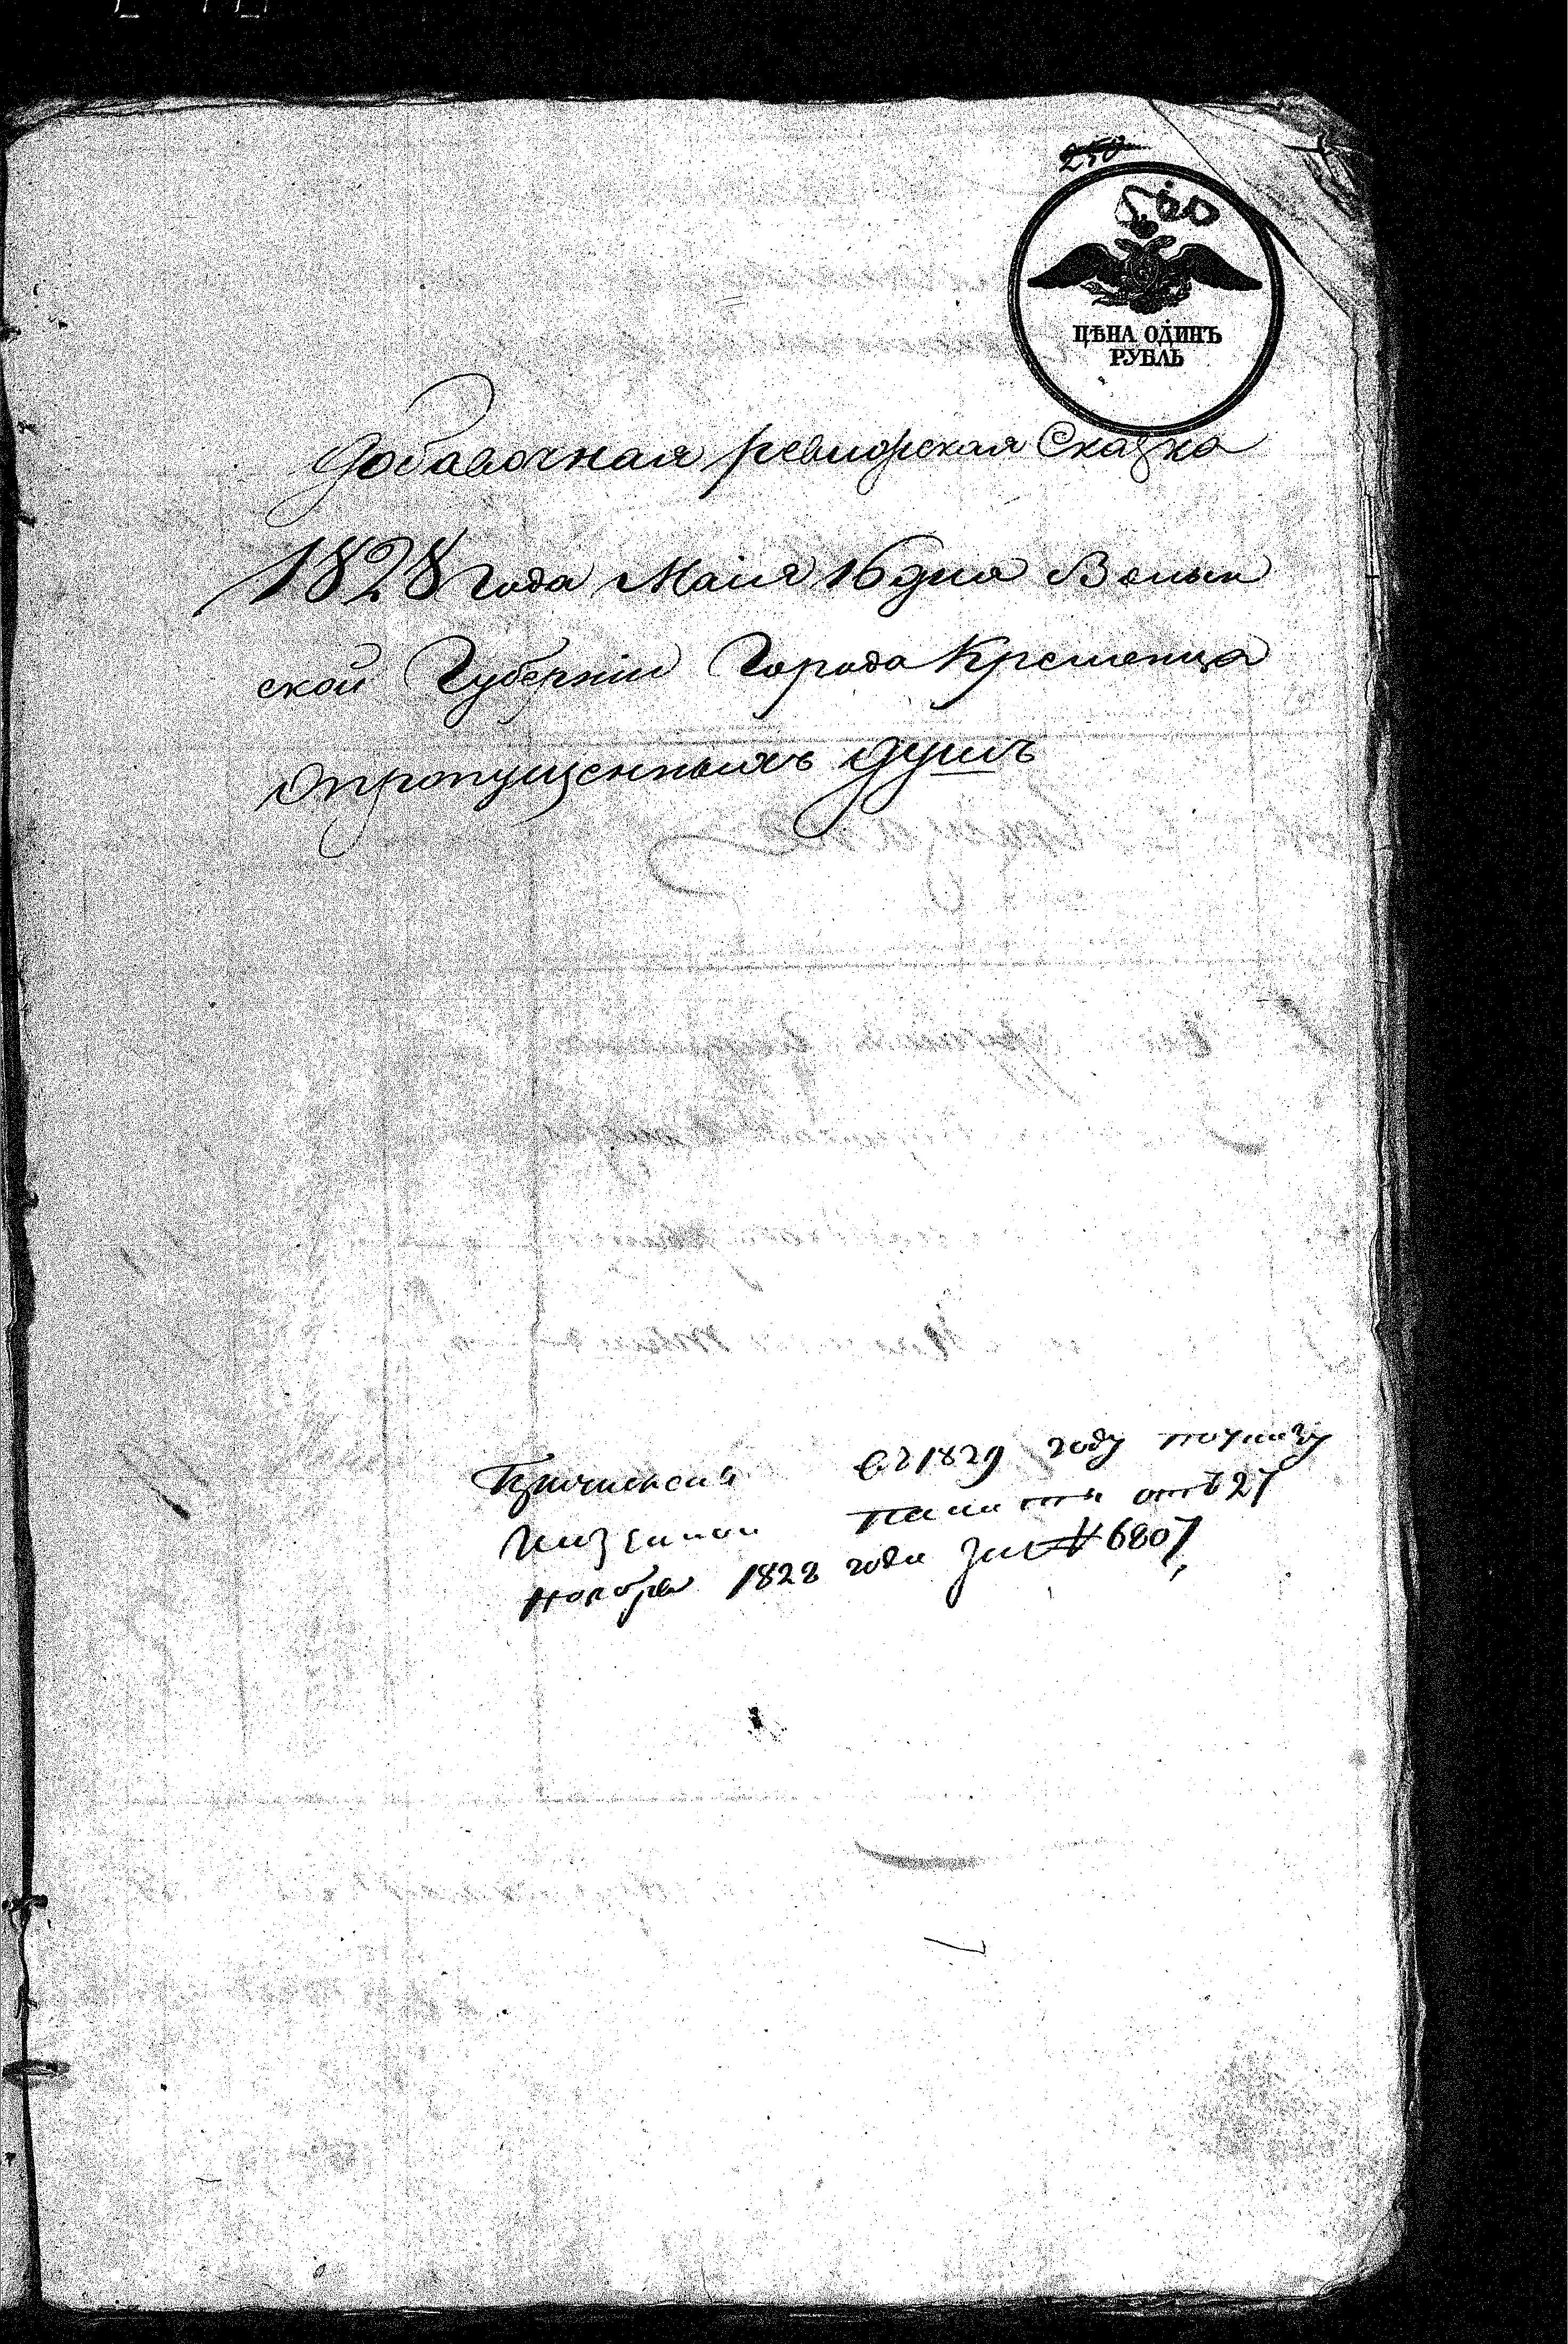 250
500
ЦѢНА ОДИНЪ
РУБЛЬ
Добавочная ревизская Сказка
1828 года Маія 16 дня Волын
ской Губерніи Города Кременца
опропущенныхъ душъ
въ 1829 году поуказу
Казенной Палаты отъ 27
ноября 1828 года за № 6807